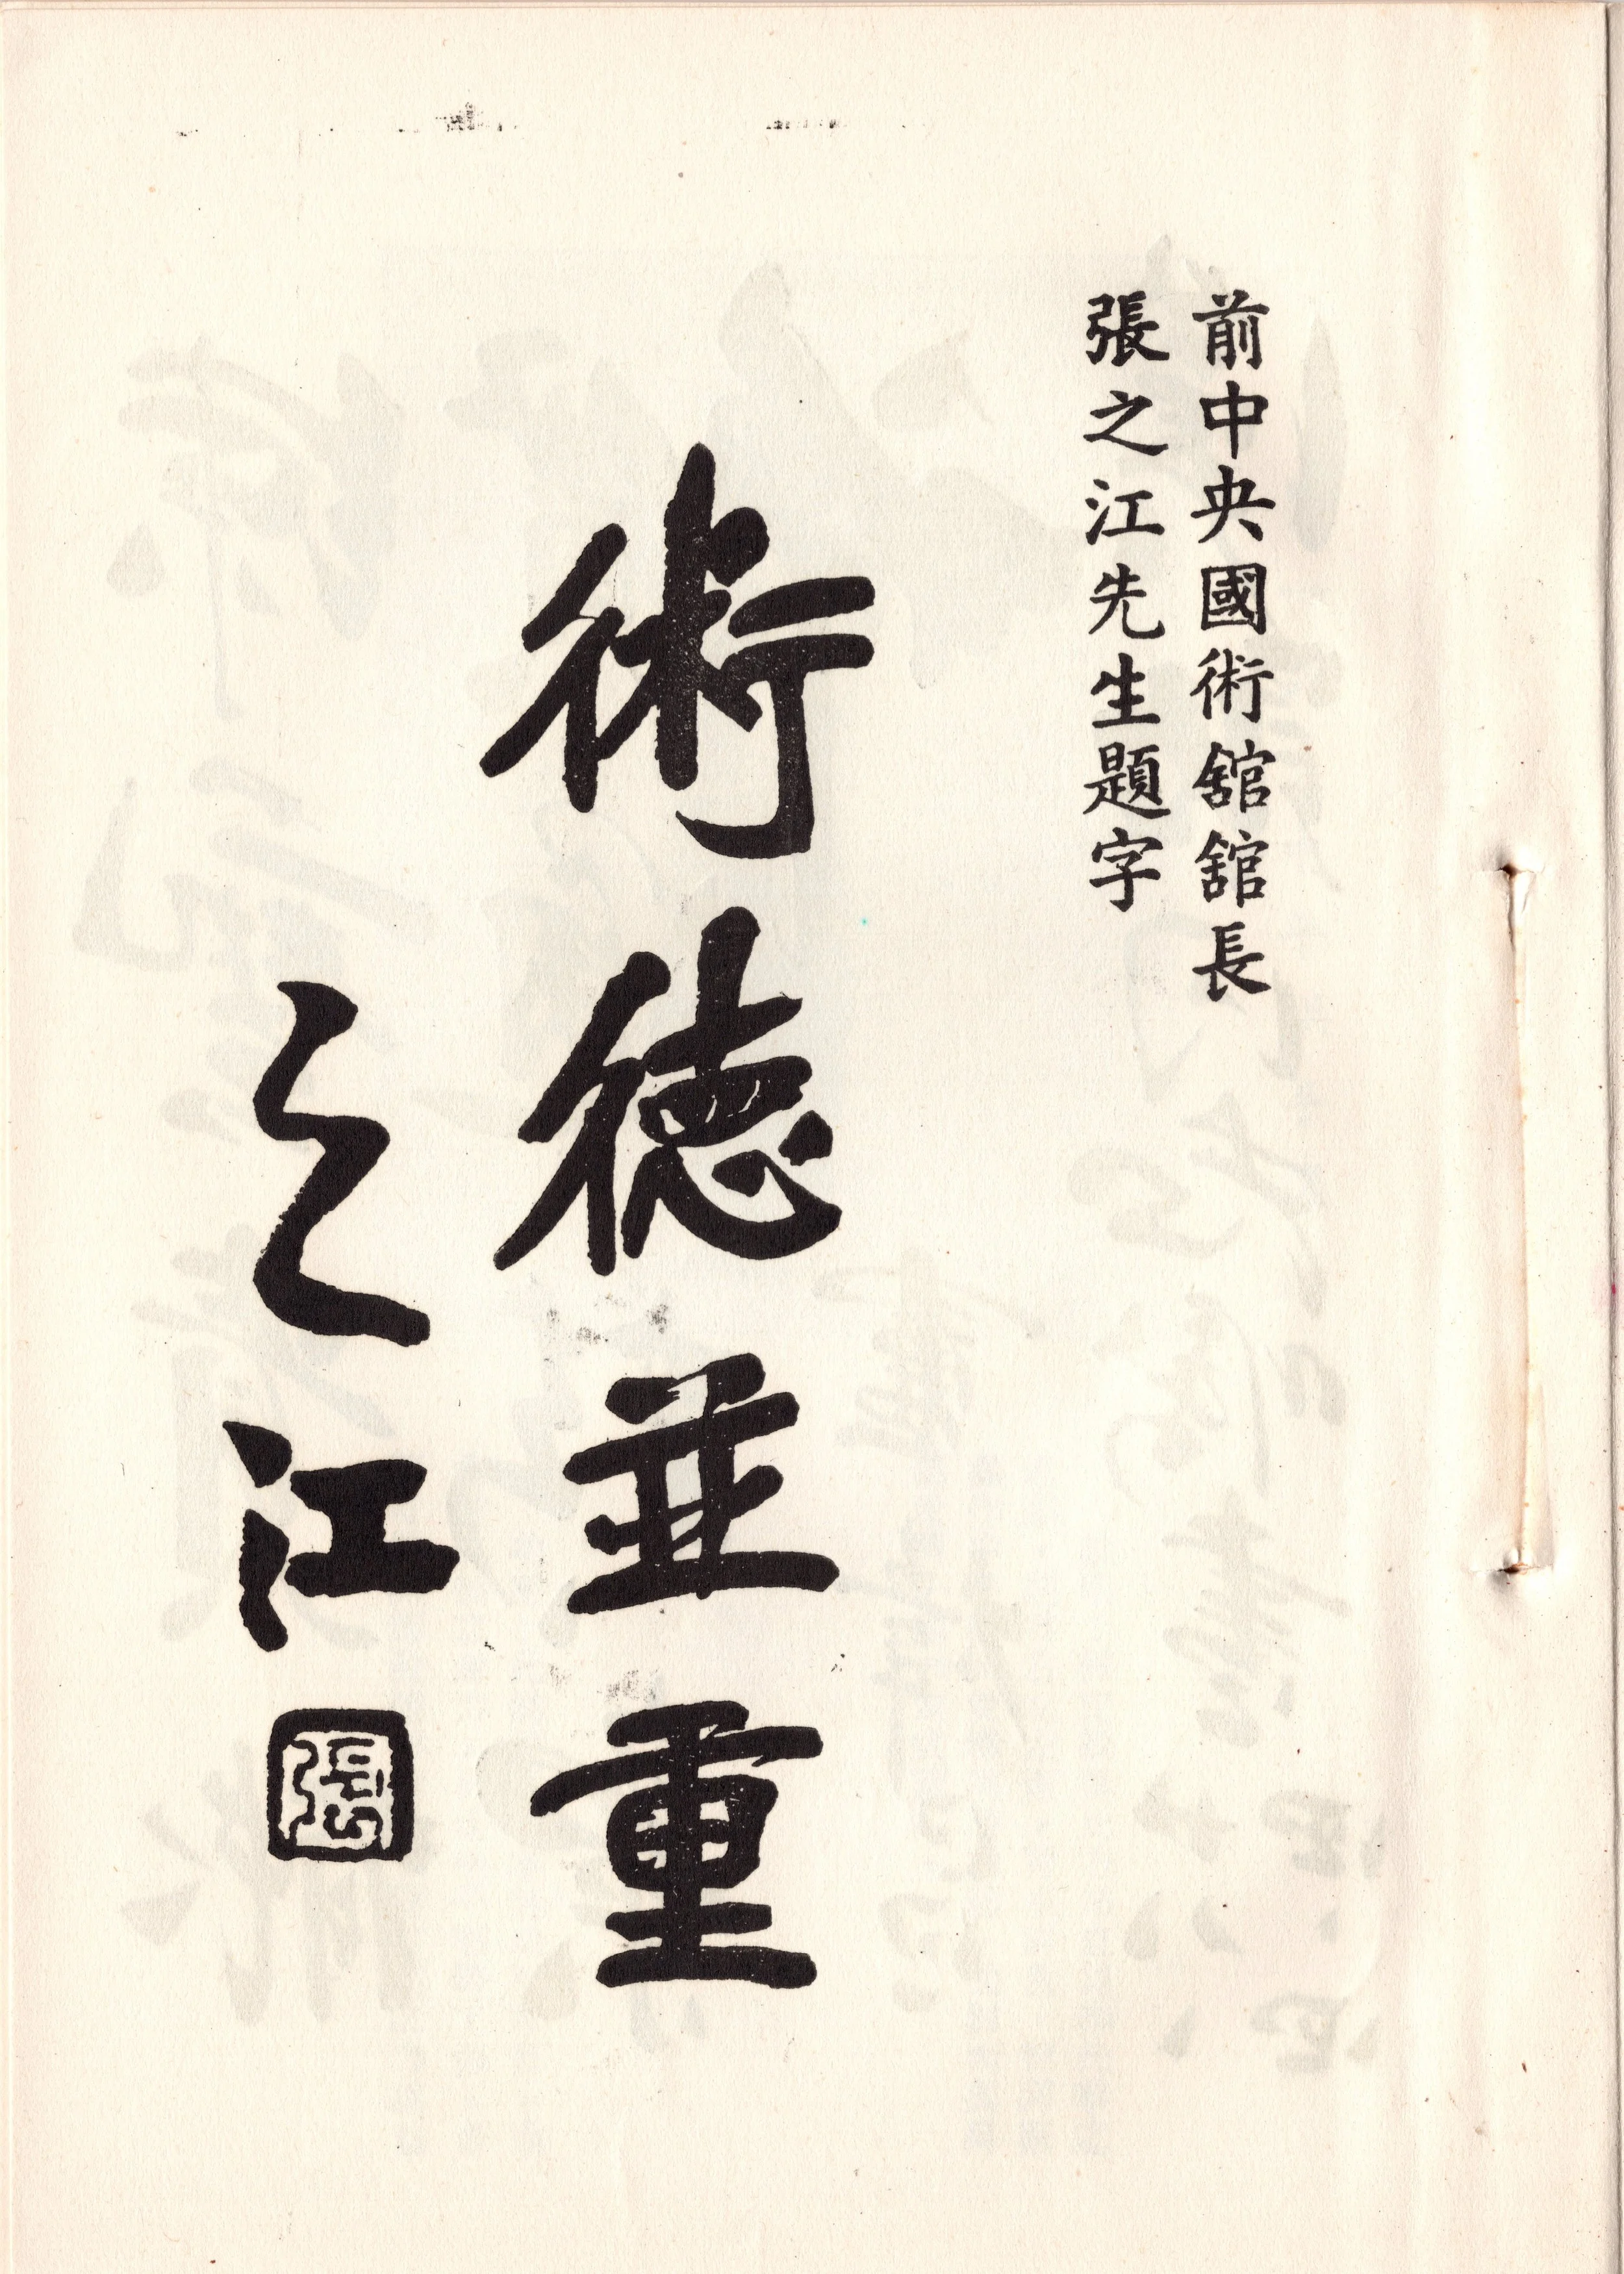 前中央國術舘舘長
張之江先生題字
術德並重
之江
張